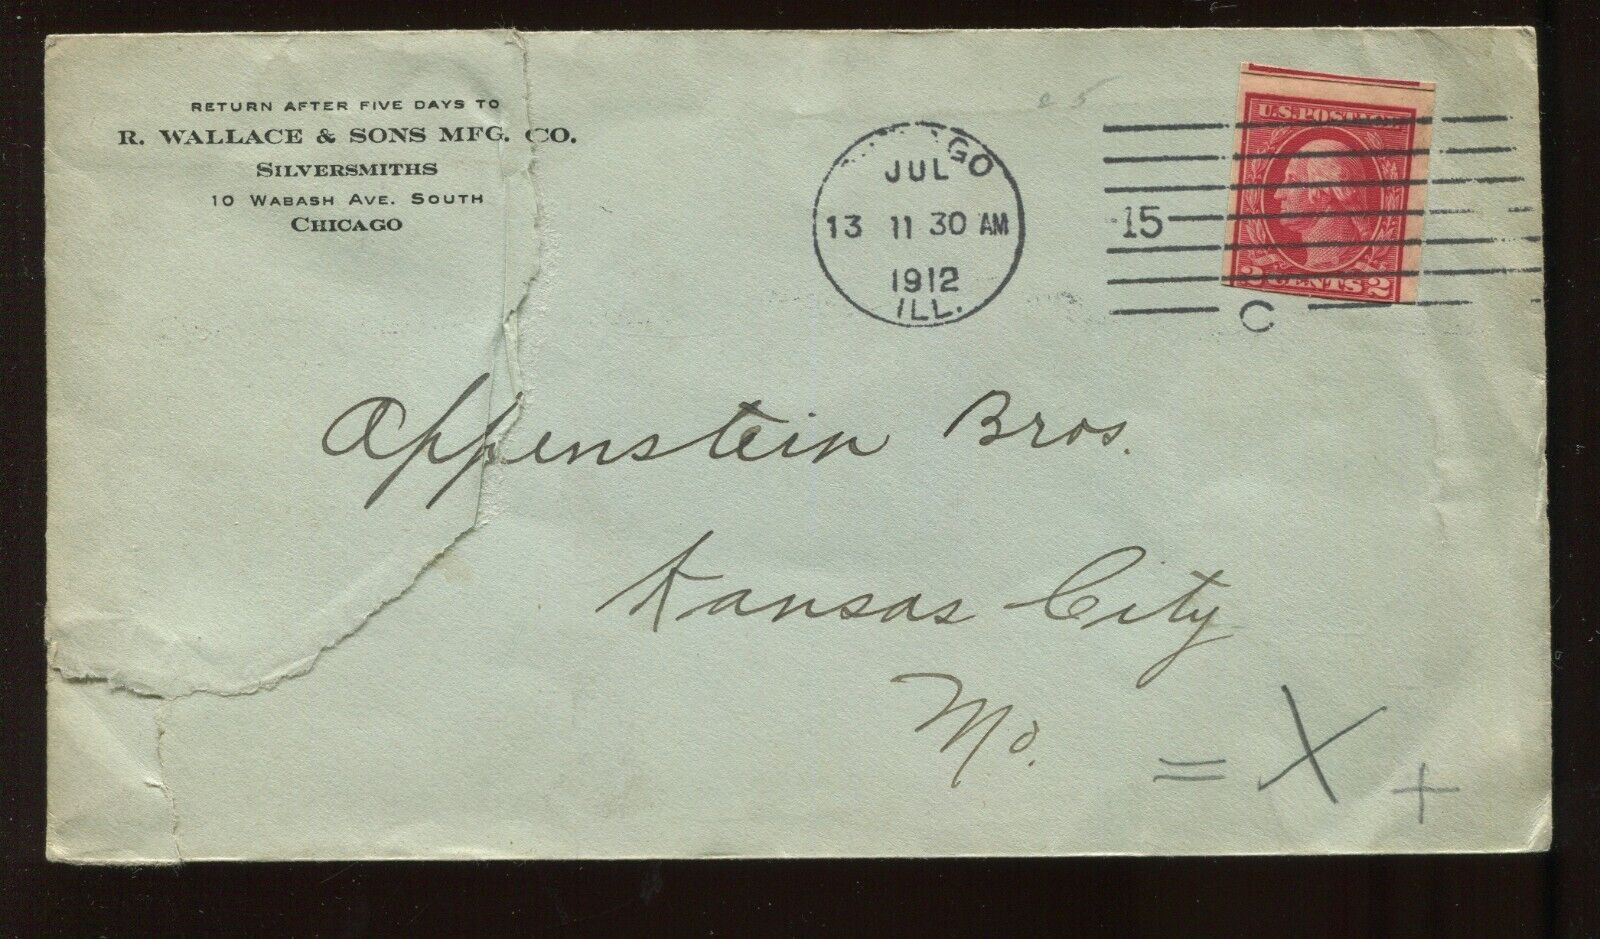 RETURN AFTER FIVE DAYS TO
R. WALLACE & SONS MFG. CO.
SILVERSMITHS
10 WABASH AVE. SOUTH
CHICAGO
GO
JUL
13 11 30 AM
1912
ILL.
15
C
U.S. POSTAGE
2 CENTS 2
Oppenstein Bros.
Kansas City
Mo.
= X +